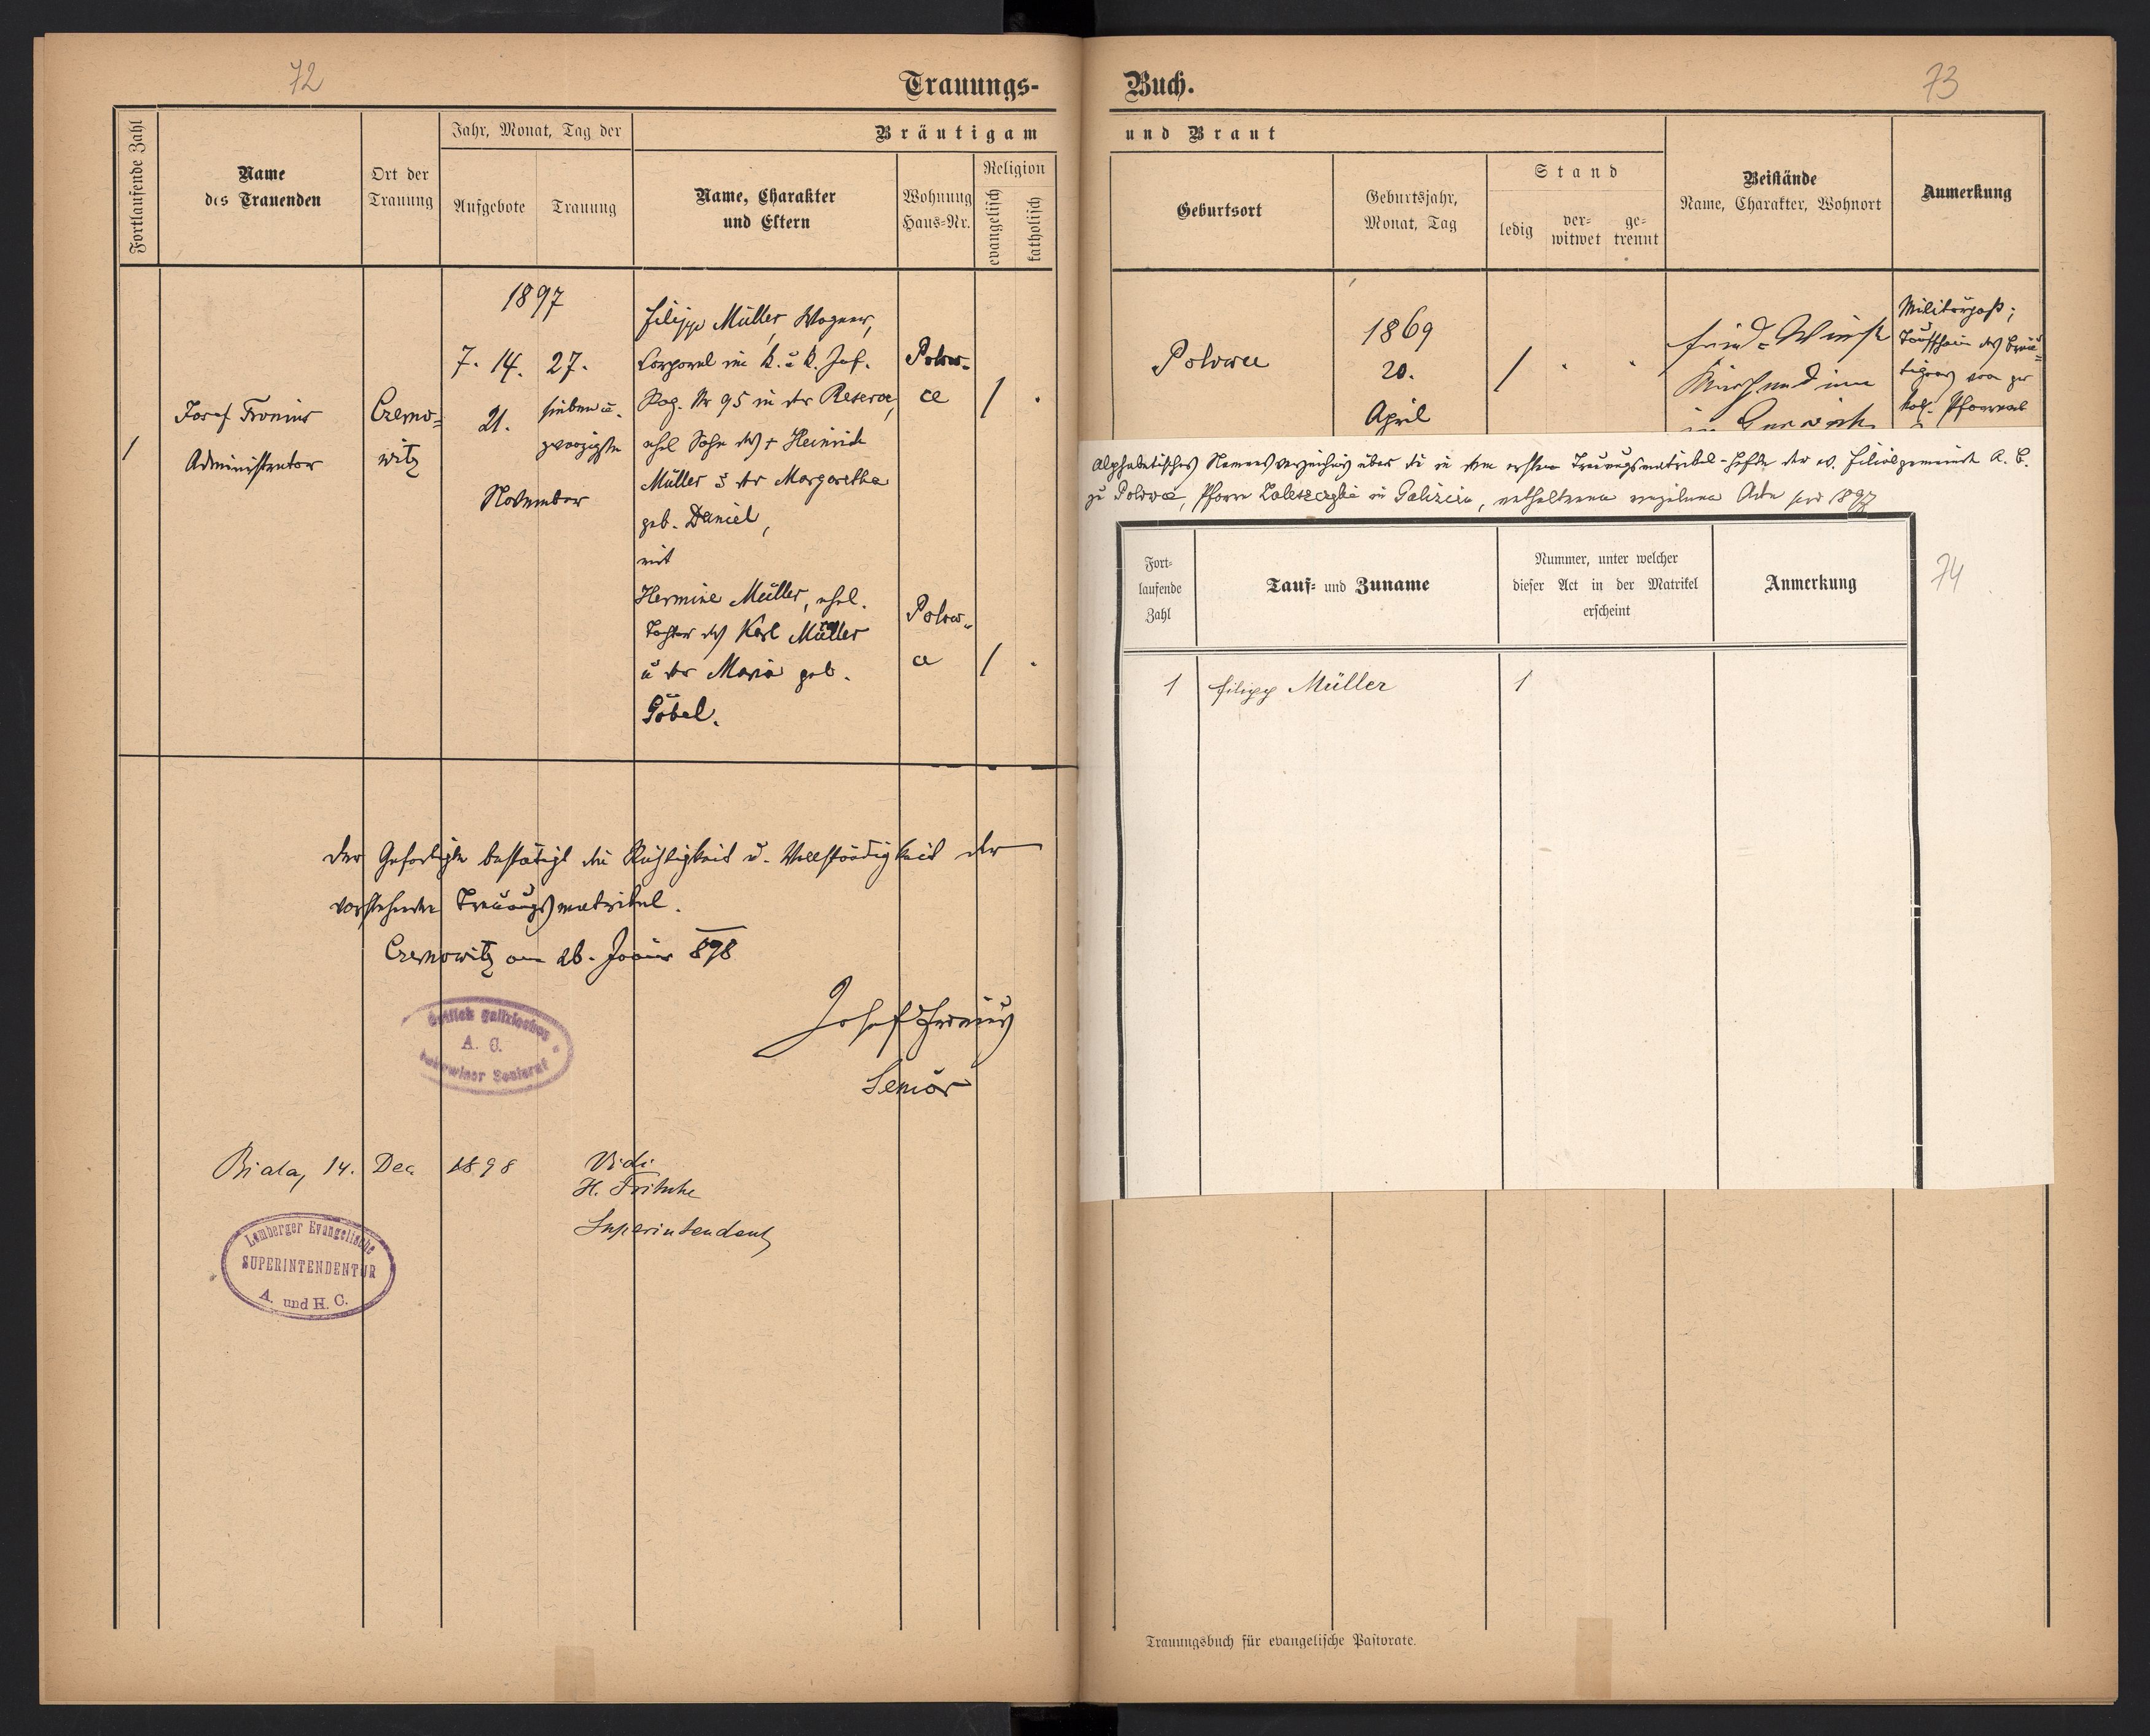 72
Trauungs-
Fortlaufende Zahl
Name
des Trauenden
Ort der
Trauung
Jahr, Monat, Tag der
Aufgebote
Trauung
Bräutigam
Name, Charakter
und Eltern
Wohnung
Haus-Nr.
Religion
evangelisch
katholisch
1
Josef Fronius
Administrator
Czerno-
witz
1897
7. 14.
21.
27.
sieben u.
zwanzigste
November
Filipp Müller, Wagner,
Corporal im k. u. k. Inf.
Reg. Nr 95 in der Reserve,
ehel. Sohn des + Heinrich
Müller u der Margaretha
geb. Daniel,
mit
Hermine Müller, ehel.
Tochter des Karl Müller
u der Maria geb.
Göbel.
Polow-
ce
/ .
Polow-
ce
/ .
Der Gefertigte bestätigt die Richtigkeit u. Vollständigkeit der
vorstehenden Trauungsmatrikel.
Czernowitz am 26. Jänner 898
Josef Fronius
Senior
A. C.
Biala, 14. Dec 1898
Vidi
H. Fritsche
Superintendent
Lemberger Evangelische
SUPERINTENDENTUR
A. und H. C.
Buch.
73
und Braut
Geburtsort
Geburtsjahr,
Monat, Tag
Stand
ledig
ver-
witwet
ge-
trennt
Beistände
Name, Charakter, Wohnort
Anmerkung
Polowce
1869
20.
April
/ . .
Militärpaß;
Taufschein des Bräu-
tigams von
Pfarramt
Alphabetisches Namensverzeichnis über die in dem ersten Trauungsmatrikel-Hefte der ev. Filialgemeinde A. B.
zu Polowce, Pfarre Zaleszczyki in Galizien, enthaltenen einzelnen Acte pro 1897
Fort-
laufende
Zahl
Tauf- und Zuname
Nummer, unter welcher
dieser Act in der Matrikel
erscheint
Anmerkung
74
1
Filipp Müller
1
Trauungsbuch für evangelische Pastorate.